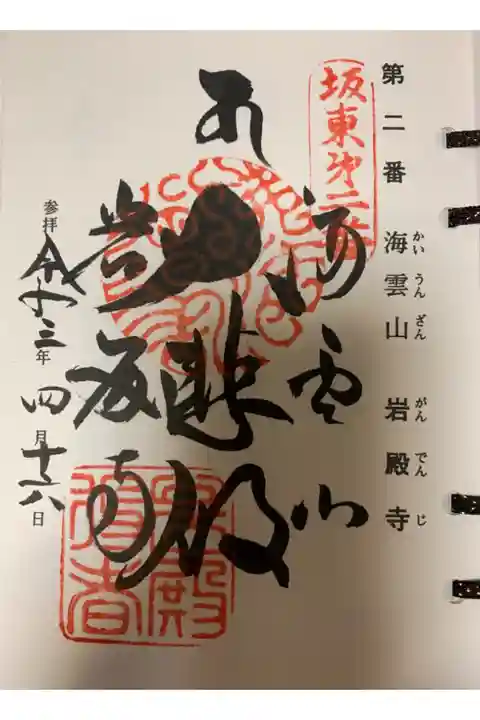 第二番 海雲山 岩殿寺
かいうんざん がんでんじ
坂東第二番
海雲山
大悲殿
岩殿寺
参拝 令和三年四月十六日